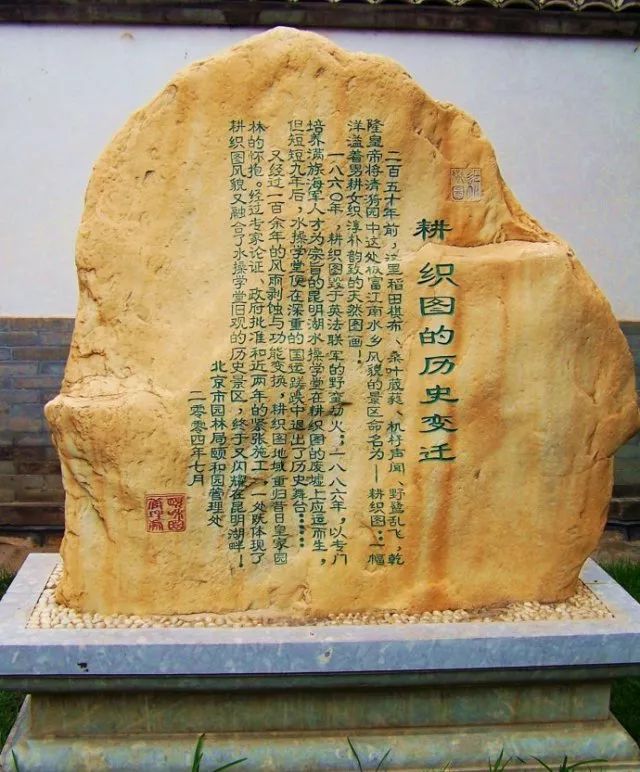 耕织图的历史变迁
二百五十年前,这里稻田棋布、桑叶葳蕤、机杼声闻、野乱飞,乾
隆皇帝将清漪园中这处极富江南水乡风貌的景区命名为——耕织图:一幅
洋溢着男耕女织淳朴韵致的天然图画!
一八六〇年,耕织图毁于英法联军的野蛮劫火;一八八六年,以专门
培养满族海军人才为宗旨的昆明湖水操学堂在耕织图的废墟上应运而生,
但短短九年后,水操学堂便在深重的国运蹉跌中退出了历史舞台……
又经过一百余年的风雨剥蚀与功能变换,耕织图地域重归昔日皇家园
林的怀抱。经过专家论证、政府批准和近两年的紧张施工,一处既体现了
耕织图风貌又融合了水操学堂旧观的历史景区,终于又闪耀在昆明湖畔!
北京市园林局颐和园管理处
二〇〇四年七月